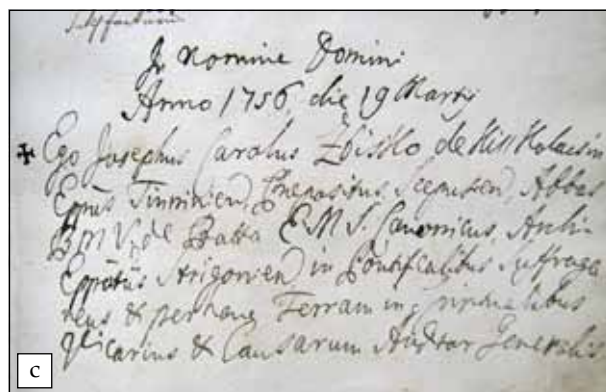 In Nomine Domini
Anno 1756, die 19 Martij
Ego Josephus Carolus Zbisko de
Eppūs Tinninien, Praepositus Scepusien, Abbas
B M V, de E M S. Canonicus, Archi-
Eppātūs Strigonien in Pontificalibus Suffraga
neus & per hanc Terram in
Vicarius & Causarum Auditor Generalis
c